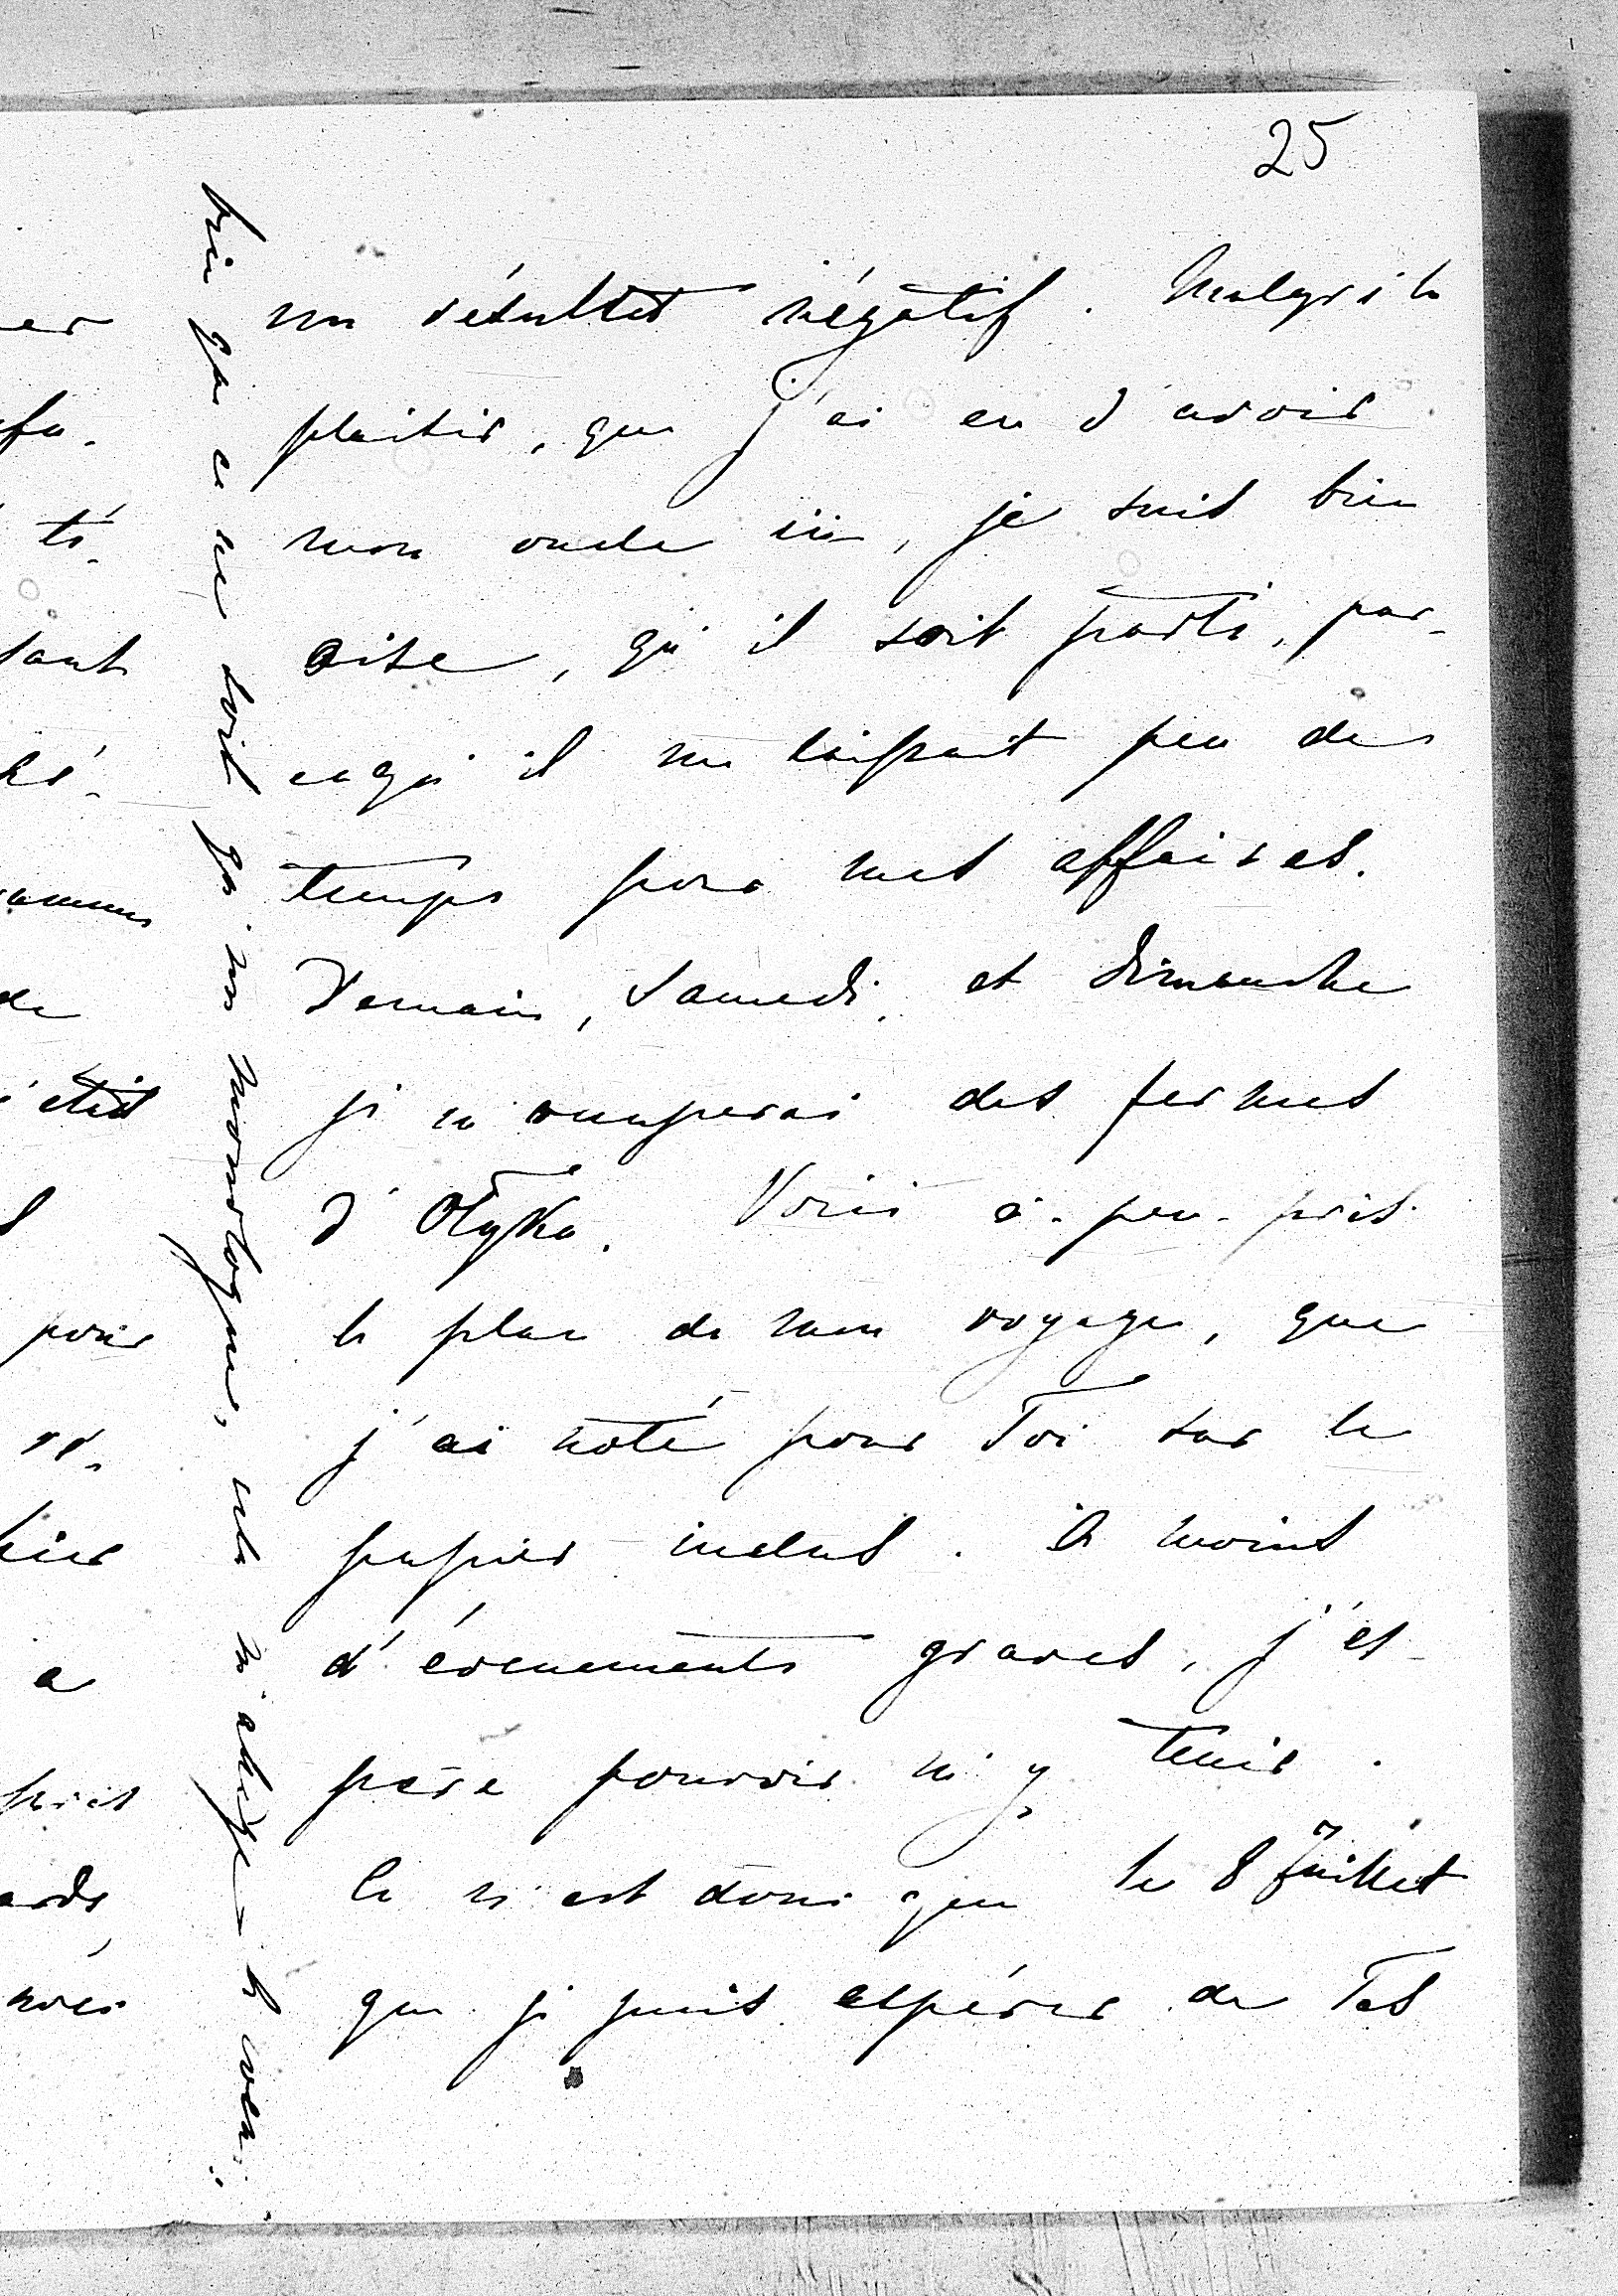 25
un résultat négatif. Malgré le
plaisir, que j'ai eu d'avoir
mon oncle ici, je suis bien
aise, qu'il soit parti, par-
cequ'il me laissait peu de
temps pour mes affaires.
Demain, Samedi, et Dimanche
je m'occuperai des fermes
d'Olyka. Voici à-peu-près
le plan de mon voyage, que
j'ai noté pour Toi sur le
papier inclus. A moins
d'évenements graves, j'es-
père pouvoir m'y tenir.
Ce n'est donc que le 8 Juillet
que je puis espérer de Tes
bien que ce ne soit qu'un monologue, cela m'allège le cœur
er
fa-
té-
sant
hé-
de
était
s
pour
ré-
a